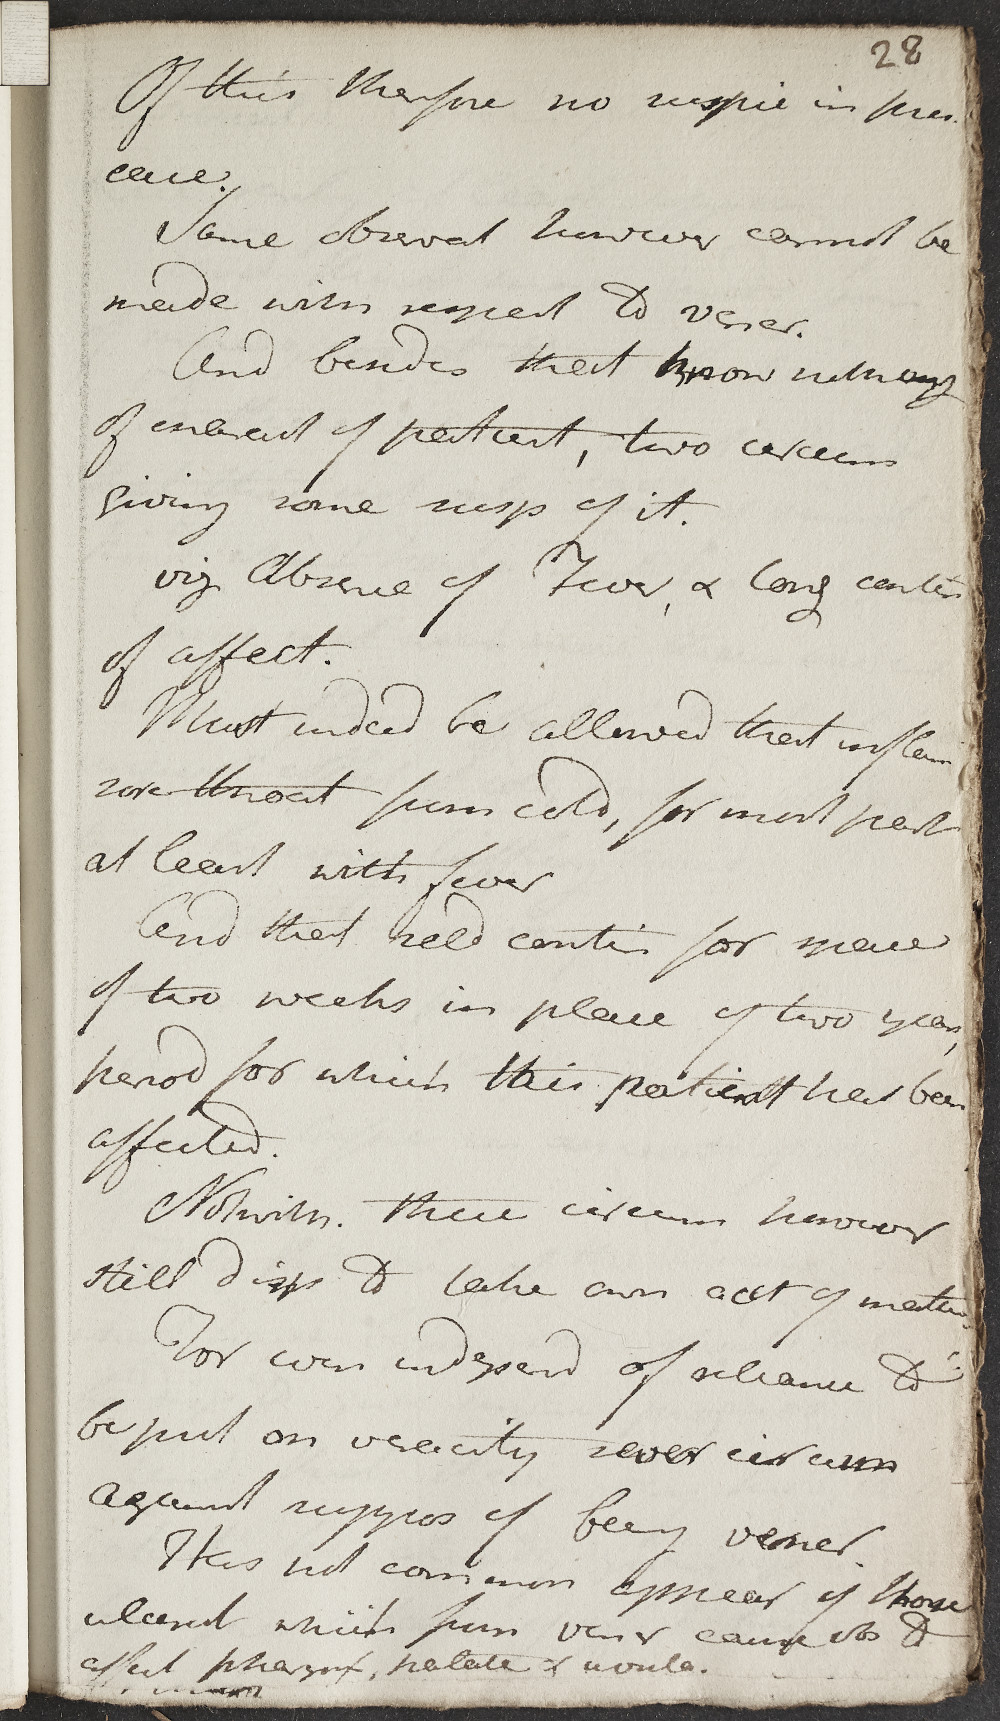 28
Of this therefore no suspic in pres.
cace.
Same observat however cannot be
made with respect to vener.
And besides that know nothing
of charact of patient, two circum
giving some susp of it.
viz Absence of Fever, & long contin
of affect.
Must indeed be allowed that inflam
sore throat from cold, for most part
at least with fever
And that seld contin for space
of two weeks in place of two years,
period for which this patient has been
affected.
Notwith. these circum however
still disp to take own acct of matter.
For even independ of reliance to
be put on veracity sever circum
against suppos of being vener.
Has not common appear of those
ulcerat which from vener cause obs to
affect pharynx, palate & uvula.